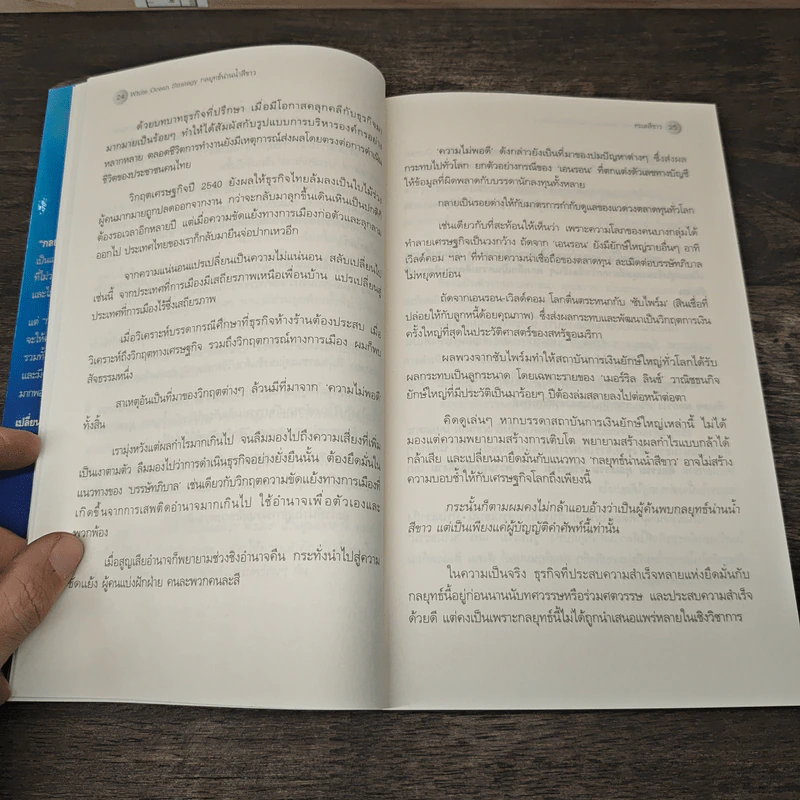 24 White Ocean Strategy กลยุทธ์น่านน้ำสีขาว
ด้วยบทบาทธุรกิจที่ปรึกษา เมื่อมีโอกาสคลุกคลีกับธุรกิจมา
มากมายเป็นร้อยๆ ทำให้ได้สัมผัสกับรูปแบบการบริหารองค์กรอย่าง
หลากหลาย ตลอดชีวิตการทำงานยังมีเหตุการณ์ส่งผลโดยตรงต่อการดำเนิน
ชีวิตของประชาชนคนไทย
วิกฤตเศรษฐกิจปี 2540 ยังผลให้ธุรกิจไทยล้มลงเป็นใบไม้ร่วง
ผู้คนมากมายถูกปลดออกจากงาน กว่าจะกลับมาลุกขึ้นเดินเหินเป็นปกติก็
ต้องรอเวลาอีกหลายปี แต่เมื่อความขัดแย้งทางการเมืองก่อตัวและลุกลาม
ออกไป ประเทศไทยของเราก็กลับมายืนจ่อปากเหวอีก
จากความแน่นอนแปรเปลี่ยนเป็นความไม่แน่นอน สลับเปลี่ยนไป
เช่นนี้ จากประเทศที่การเมืองมีเสถียรภาพเหนือเพื่อนบ้าน แปรเปลี่ยนสู่
ประเทศที่การเมืองไร้ซึ่งเสถียรภาพ
เมื่อวิเคราะห์บรรดากรณีศึกษาที่ธุรกิจห้างร้านต้องประสบ เมื่อ
วิเคราะห์ถึงวิกฤตทางเศรษฐกิจ รวมถึงวิกฤตการณ์ทางการเมือง ผมก็พบ
สัจธรรมหนึ่ง
สาเหตุอันเป็นที่มาของวิกฤตต่างๆ ล้วนมีที่มาจาก 'ความไม่พอดี'
ทั้งสิ้น
เรามุ่งหวังแต่ผลกำไรมากเกินไป จนลืมมองไปถึงความเสี่ยงที่เพิ่ม
เป็นเงาตามตัว ลืมมองไปว่าการดำเนินธุรกิจอย่างยั่งยืนนั้น ต้องยึดมั่นใน
แนวทางของ 'บรรษัทภิบาล' เช่นเดียวกับวิกฤตความขัดแย้งทางการเมืองที่
เกิดขึ้นจากการเสพติดอำนาจมากเกินไป ใช้อำนาจเพื่อตัวเองและ
พวกพ้อง
เมื่อสูญเสียอำนาจก็พยายามช่วงชิงอำนาจคืน กระทั่งนำไปสู่ความ
ขัดแย้ง ผู้คนแบ่งฝักฝ่าย คนละพวกคนละสี
25
'ความไม่พอดี' ดังกล่าวยังเป็นที่มาของปมปัญหาต่างๆ ซึ่งส่งผล
กระทบไปทั่วโลก ยกตัวอย่างกรณีของ 'เอนรอน' ที่ตกแต่งตัวเลขทางบัญชี
ให้ข้อมูลที่ผิดพลาดกับบรรดานักลงทุนทั้งหลาย
กลายเป็นรอยด่างให้กับมาตรการกำกับดูแลของแวดวงตลาดทุนทั่วโลก
เช่นเดียวกับที่สะท้อนให้เห็นว่า เพราะความโลภของคนบางกลุ่มได้
ทำลายเศรษฐกิจเป็นวงกว้าง ถัดจาก 'เอนรอน' ยังมียักษ์ใหญ่รายอื่นๆ อาทิ
เวิลด์คอม ฯลฯ ที่ทำลายความน่าเชื่อถือของตลาดทุน ละเมิดต่อบรรษัทภิบาล
ไม่หยุดหย่อน
ถัดจากเอนรอน-เวิลด์คอม โลกตื่นตระหนกกับ 'ซับไพร์ม' (สินเชื่อที่
ปล่อยให้กับลูกหนี้ด้อยคุณภาพ) ซึ่งส่งผลกระทบและพัฒนาเป็นวิกฤตการเงิน
ครั้งใหญ่ที่สุดในประวัติศาสตร์ของสหรัฐอเมริกา
ผลพวงจากซับไพร์มทำให้สถาบันการเงินยักษ์ใหญ่ทั่วโลกได้รับ
ผลกระทบเป็นลูกระนาด โดยเฉพาะรายของ 'เมอร์ริล ลินซ์' วาณิชธนกิจ
ยักษ์ใหญ่ที่มีประวัติเป็นมาร้อยๆ ปีต้องล่มสลายลงไปต่อหน้าต่อตา
คิดดูเล่นๆ หากบรรดาสถาบันการเงินยักษ์ใหญ่เหล่านี้ ไม่ได้
มองแต่ความพยายามสร้างการเติบโต พยายามสร้างผลกำไรแบบกล้าได้
กล้าเสีย และเปลี่ยนมายึดมั่นกับแนวทาง 'กลยุทธ์น่านน้ำสีขาว' อาจไม่สร้าง
ความบอบช้ำให้กับเศรษฐกิจโลกถึงเพียงนี้
กระนั้นก็ตามผมคงไม่กล้าแอบอ้างว่าเป็นผู้ค้นพบกลยุทธ์น่านน้ำ
สีขาว แต่เป็นเพียงแค่ผู้บัญญัติคำศัพท์นี้เท่านั้น
ในความเป็นจริง ธุรกิจที่ประสบความสำเร็จหลายแห่งยึดมั่นกับ
กลยุทธ์นี้อยู่ก่อนนานนับทศวรรษหรือร่วมศตวรรษ และประสบความสำเร็จ
ด้วยดี แต่คงเป็นเพราะกลยุทธ์นี้ไม่ได้ถูกนำเสนอแพร่หลายในเชิงวิชาการ